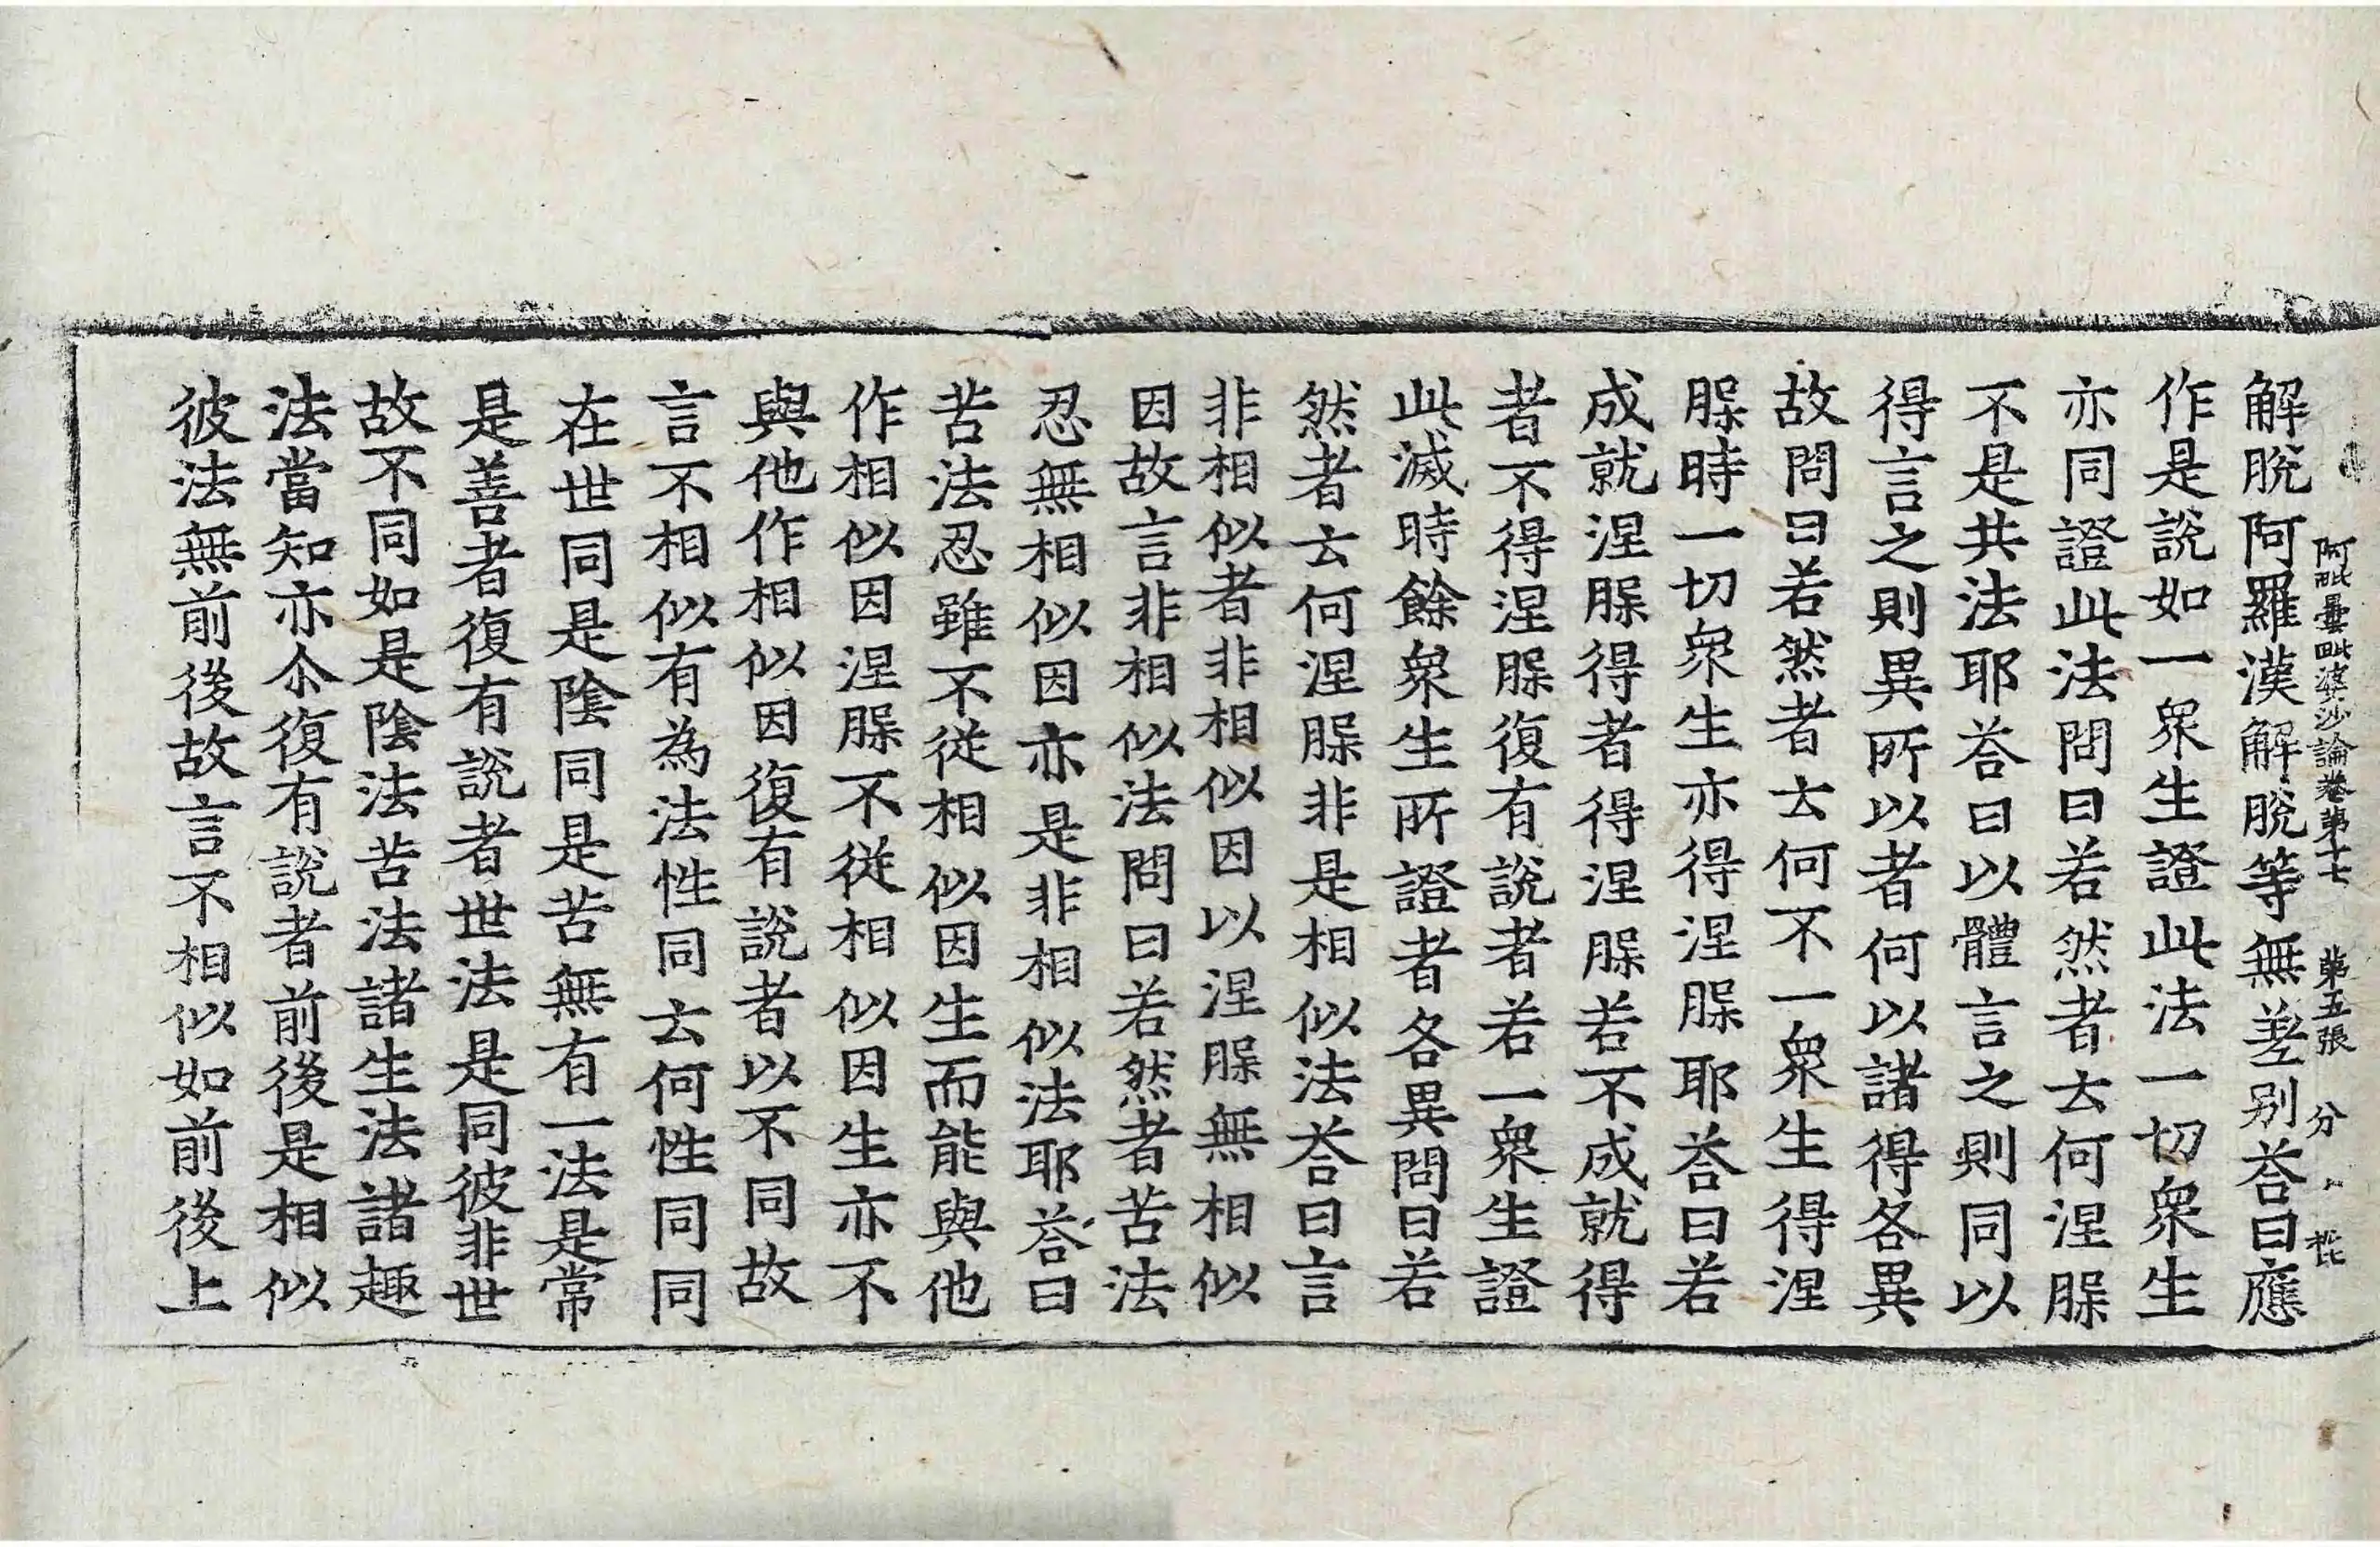 阿毗曇毗婆沙論卷第十七 第五張 分
解脫阿羅漢解脫等無差别荅曰應
作是說如一衆生證此法一切衆生
亦同證此法問曰若然者云何涅膎
不是共法耶荅曰以體言之則同以
得言之則異所以者何以諸得各異
故問曰若然者云何不一衆生得涅
膎時一切衆生亦得涅膎耶荅曰若
成就涅膎得者得涅膎若不成就得
者不得涅膎復有說者若一衆生證
此滅時餘衆生所證者各異問曰若
然者云何涅膎非是相似法荅曰言
非相似者非相似因以涅膎無相似
因故言非相似法問曰若然者苦法
忍無相似因亦是非相似法耶荅曰
苦法忍雖不從相似因生而能與他
作相似因涅膎不從相似因生亦不
與他作相似因復有說者以不同故
言不相似有為法性同云何性同同
在世同是陰同是苦無有一法是常
是善者復有說者世法是同彼非世
故不同如是陰法苦法諸生法諸趣
法當知亦尒復有說者前後是相似
彼法無前後故言不相似如前後上